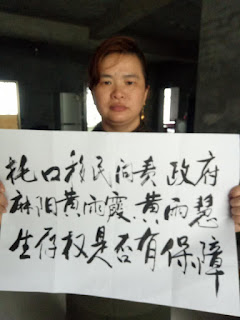 托口移民问责政府
麻阳黄雨霞.黄雨慧
生存权是否有保障